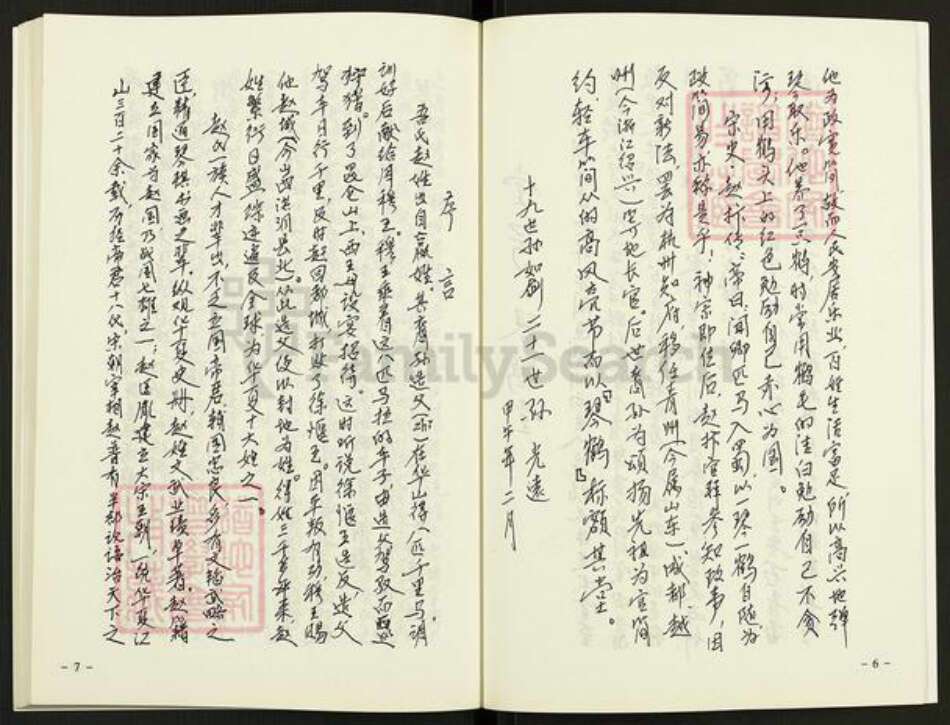 他为政宽简,故而人民安居乐业,百姓生活富足,所以高兴地弹
琴取乐。他养了一只鹤,时常用鹤毛的洁白勉励自己不贪
污;用鹤头上的红色勉励自己赤心为国。
宋史·赵抃传:帝曰:闻卿匹马入蜀,以一琴一鹤自随,为
政简易,亦称是乎!神宗即位后,赵抃官拜参知政事,因
反对新法,罢为杭州知府,移任青州(今属山东)、成都、越
州(今浙江绍兴)等地长官。后世裔孙为颂扬先祖为官简
约、轻车简从的高风亮节而以“琴鹤”标额其堂。
十九世孙如剑 二十一世孙 光远
甲午年二月
- 6 -
序言
吾氏赵姓出自嬴姓。其裔孙造父(跡)在华山得八匹千里马,调
训好后献给周穆王。穆王乘着这八匹马拉的车子,由造父驾驭而西巡
狩猎。到了昆仑山上,西王母设宴招待。这时听说徐偃王造反,造父
驾车日行千里,及时赶回都城,打败了徐偃王。因平叛有功,穆王赐
他赵城(今山西洪洞县北)从此造父便以封地为姓。得姓三千多年来,赵
姓繁衍日盛,踪迹遍及全球,为华夏十大姓之一。
赵氏一族人才辈出,不乏立国帝君、辅国忠良,多有文韬武略之
臣,精通琴棋书画之辈。纵观华夏史册,赵姓文武业绩卓著。赵籍
建立国家为赵国,乃战国七雄之一;赵匡胤建立大宋王朝,一统华夏江
山三百二十余载,历经帝君十八代;宋朝宰相赵普有半部论语治天下之
- 7 -
FamilySearch